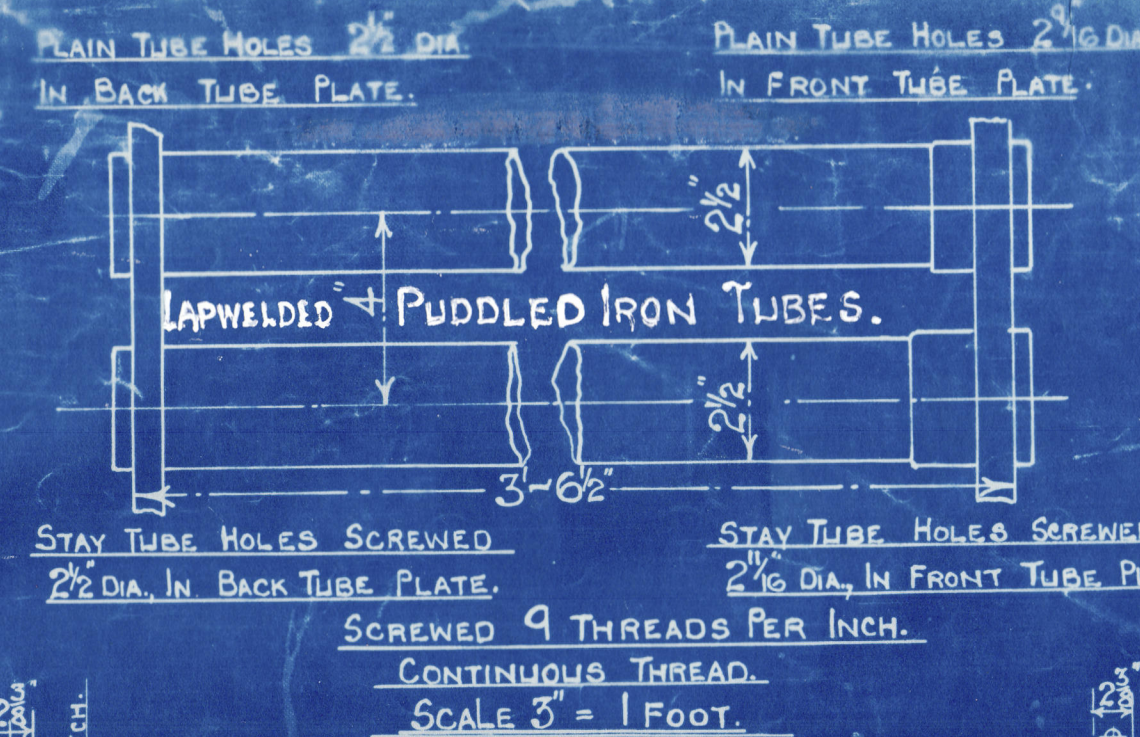 PLAIN TUBE HOLES 2½" DIA.
IN BACK TUBE PLATE.
PLAIN TUBE HOLES 2 9/16 DIA
IN FRONT TUBE PLATE.
2½"
LAPWELDED 4" PUDDLED IRON TUBES.
2½"
3'~6½"
STAY TUBE HOLES SCREWED
2½" DIA., IN BACK TUBE PLATE.
STAY TUBE HOLES SCREWE
2 11/16" DIA., IN FRONT TUBE PL
SCREWED 9 THREADS PER INCH.
CONTINUOUS THREAD.
SCALE 3" = 1 FOOT.
CH.